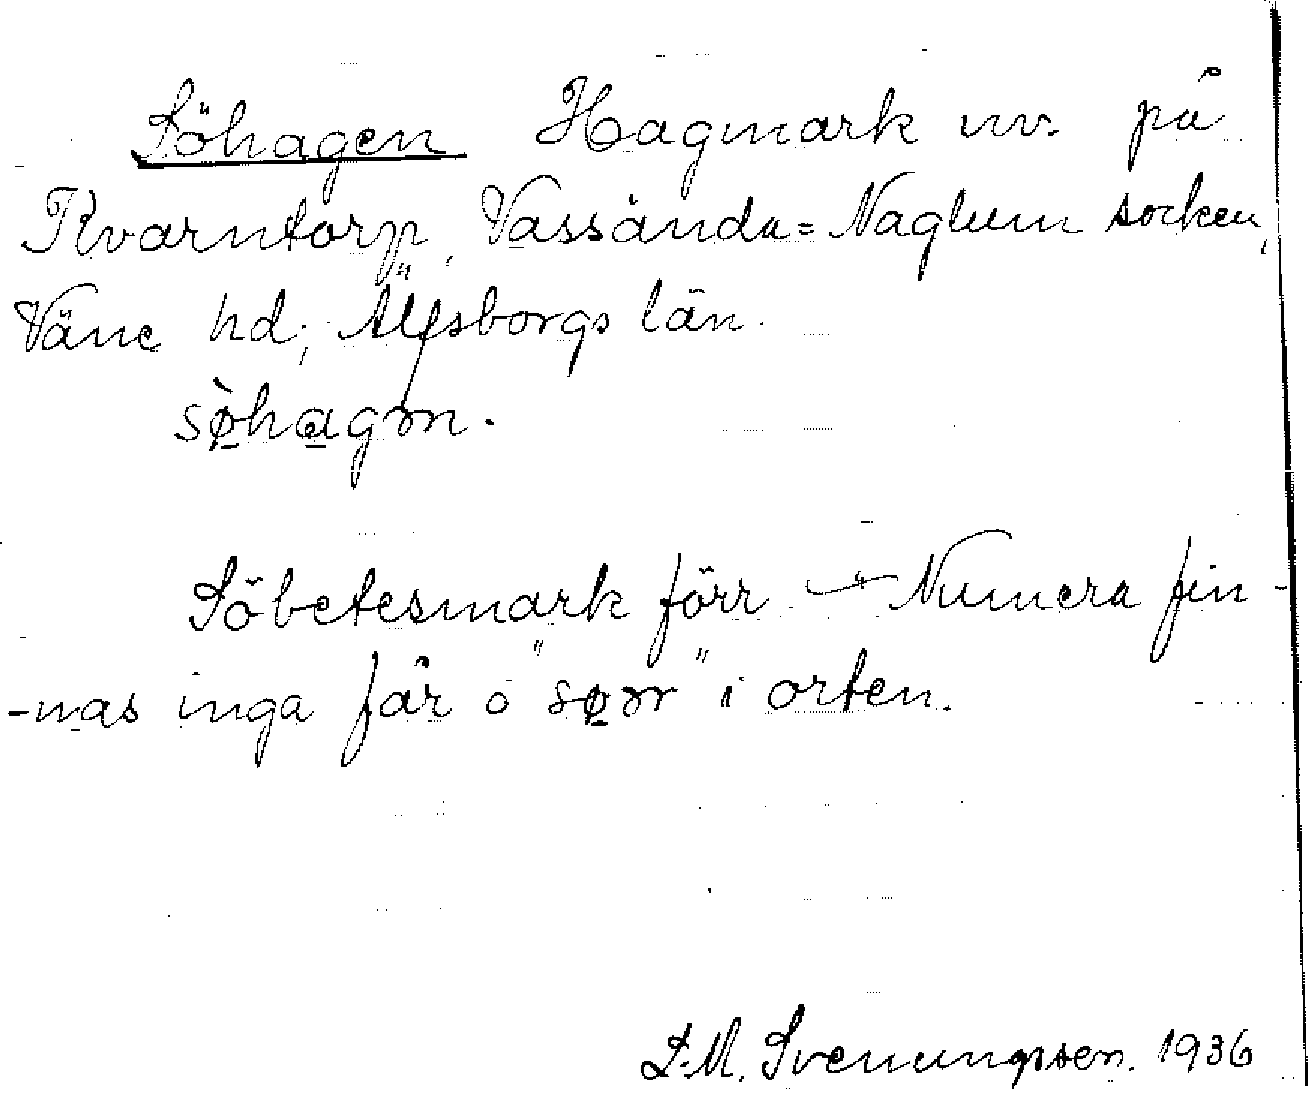 Söhagen Hagmark nv. på
Kvarntorp, Vassända=Naglum socken,
Väne hd; Älfsborgs län.
sø̀hagən.
Söbetesmark förr. — Numera fin-
-nas inga får o "søər" i orten.
S.M. Svenungsson. 1936